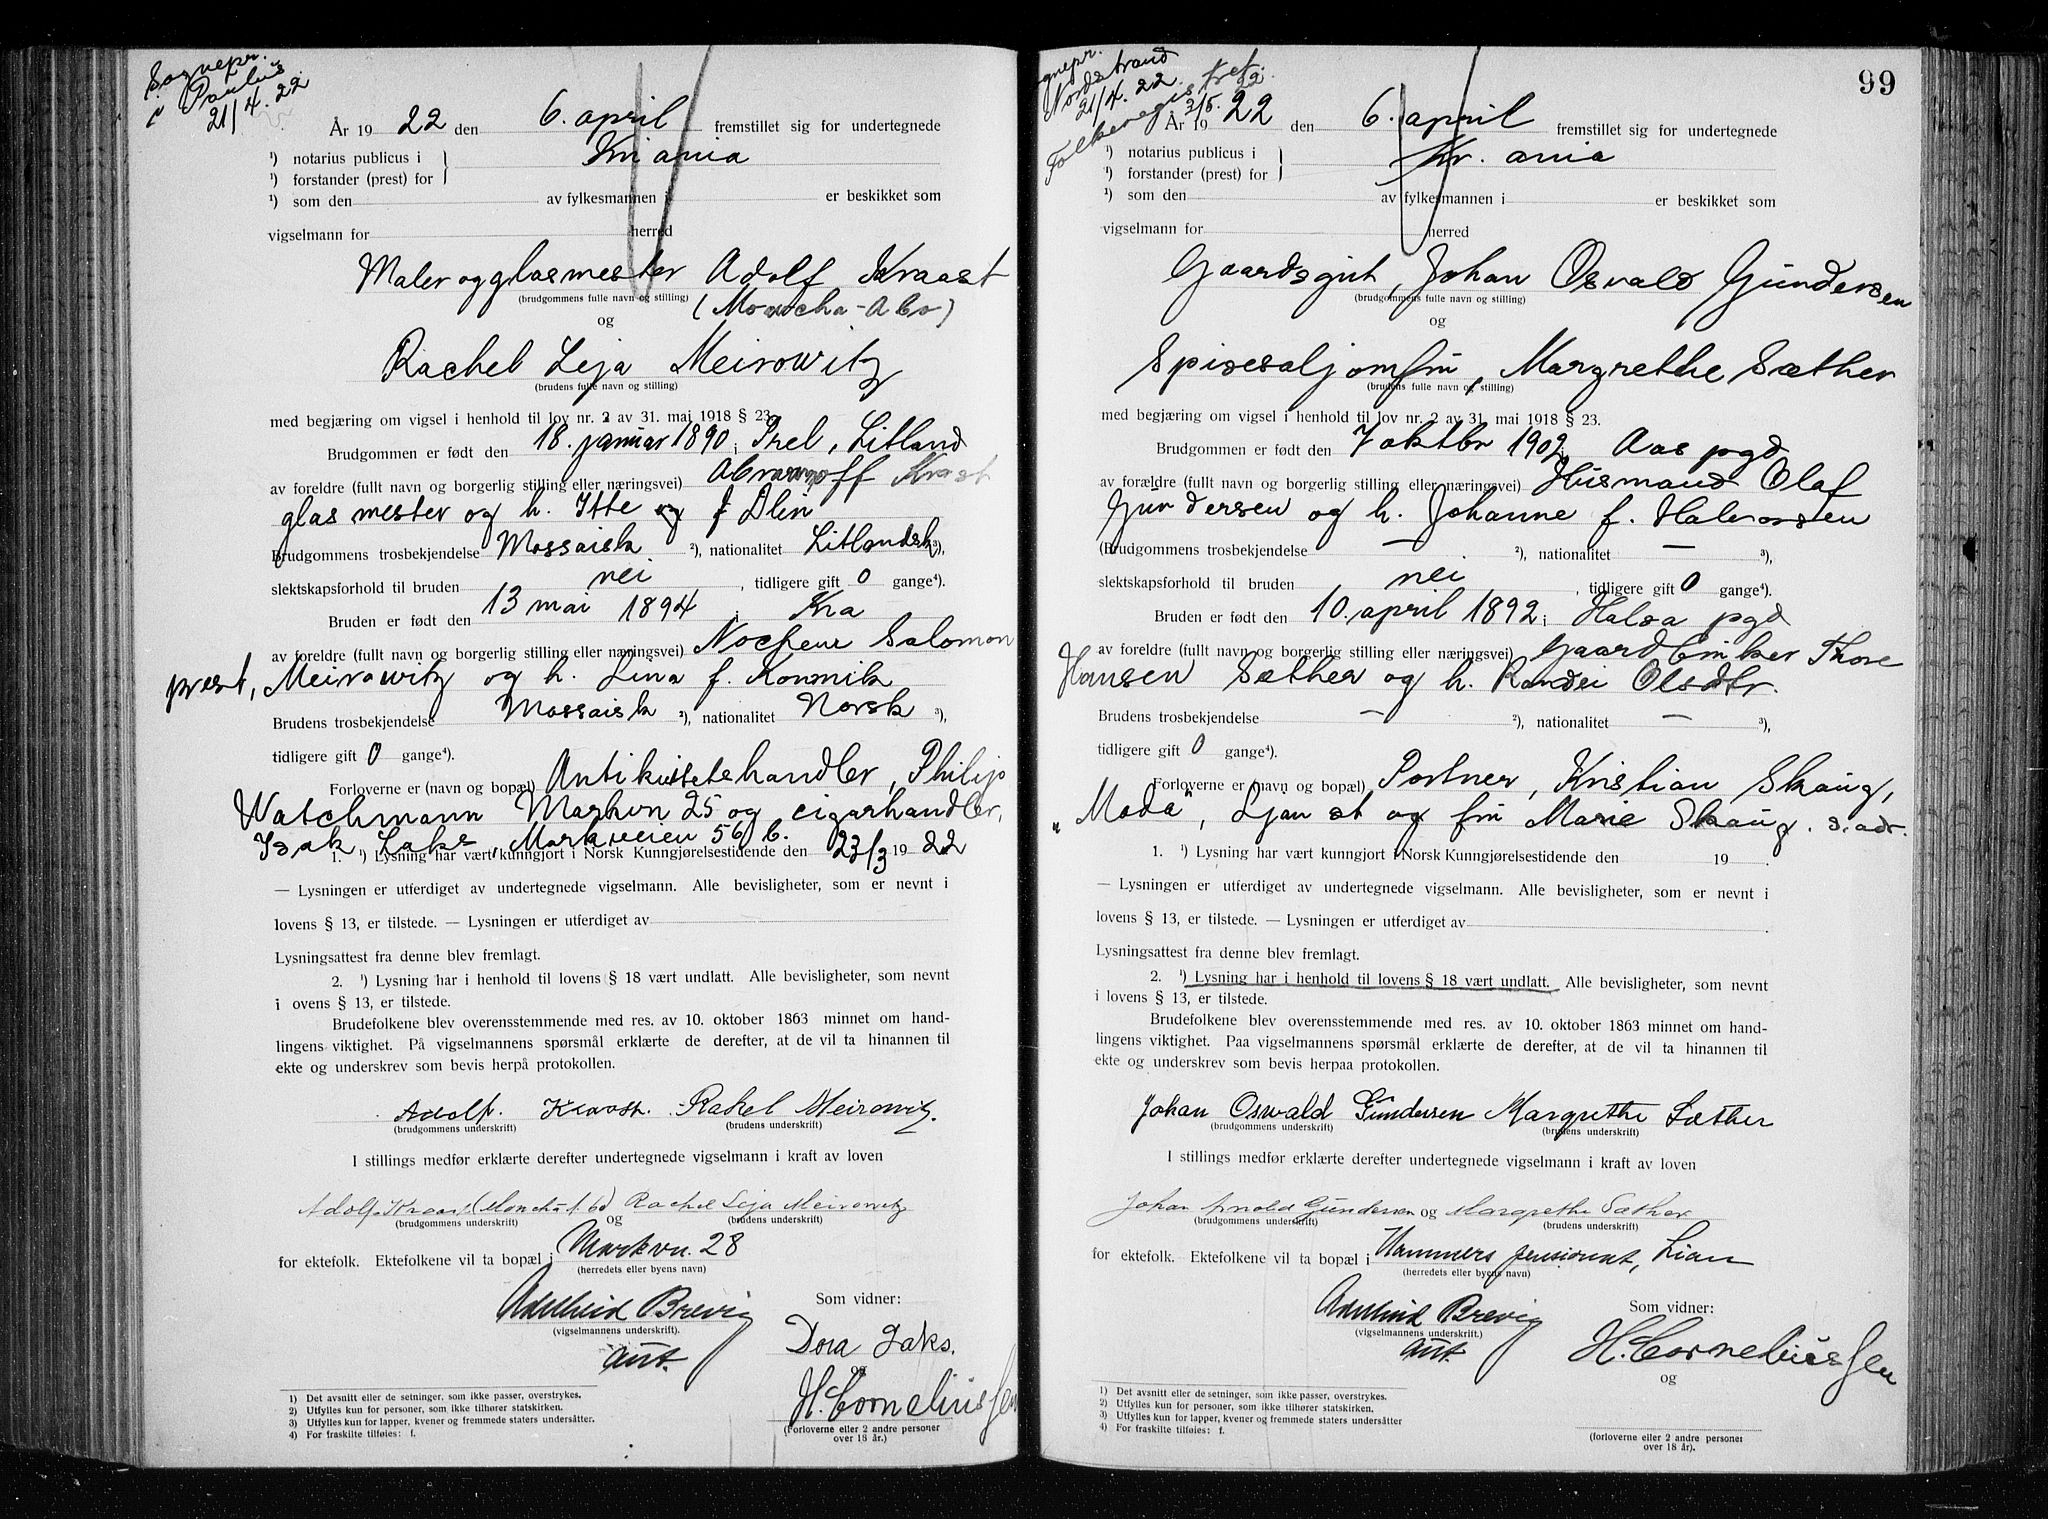 Sognepr.
i Paulus
21/4. 22
År 19 22 den 6. april fremstillet sig for undertegnede
¹) notarius publicus i Kriania
¹) forstander (prest) for
¹) som den av fylkesmannen i er beskikket som
vigselmann for herred
Maler og glasmester Adolf Kraast
(brudgommens fulle navn og stilling) (Moncha-Abo)
og
Rachel Leja Meirowitz
(brudens fulle navn og stilling)
med begjæring om vigsel i henhold til lov nr. 2 av 31. mai 1918 § 23.
Brudgommen er født den 18. januar 1890, i Prel, Litland
av foreldre (fullt navn og borgerlig stilling eller næringsvei) Kraast
glasmester og h. Itte f Dlin
Brudgommens trosbekjendelse Mossaisk ²), nationalitet Litlandsk ³),
slektskapsforhold til bruden nei, tidligere gift 0 gange⁴).
Bruden er født den 13 mai 1894 i Kra
av foreldre (fullt navn og borgerlig stilling eller næringsvei) Salomon
prest, Meirowitz og h. Lina f. Konmik
Brudens trosbekjendelse Mossaisk ²), nationalitet Norsk ³),
tidligere gift 0 gange⁴).
Forloverne er (navn og bopæl) Antikvitetshandler, Philip
Watchmann Markvn 25 og cigarhandler,
Isak Laks, Markveien 56 b.
1. ¹) Lysning har vært kunngjort i Norsk Kunngjørelsestidende den 23/3 19 22
— Lysningen er utferdiget av undertegnede vigselmann. Alle bevisligheter, som er nevnt i
lovens § 13, er tilstede. — Lysningen er utferdiget av
Lysningsattest fra denne blev fremlagt.
2. ¹) Lysning har i henhold til lovens § 18 vært undlatt. Alle bevisligheter, som nevnt
i ovens § 13, er tilstede.
Brudefolkene blev overensstemmende med res. av 10. oktober 1863 minnet om hand-
lingens viktighet. På vigselmannens spørsmål erklærte de derefter, at de vil ta hinannen til
ekte og underskrev som bevis herpå protokollen.
Adolf. Kraast. Rakel Meirowitz.
(brudgommens underskrift) (brudens underskrift)
I stillings medfør erklærte derefter undertegnede vigselmann i kraft av loven
Adolf Kraast (Moncha Abo) Rachel Leja Meirowitz
(brudgommens underskrift) og (brudens underskrift)
for ektefolk. Ektefolkene vil ta bopæl i Markvn. 28
(herredets eller byens navn)
Adelheid Brevig
(vigselmannens underskrift).
aut.
Som vidner:
Dora Laks.
og
H. Corneliussen
(Forloverne eller 2 andre personer
over 18 år.)
1) Det avsnitt eller de setninger, som ikke passer, overstrykes.
2) Utfylles kun for personer, som ikke tilhører statskirken.
3) Utfylles kun for lapper, kvener og fremmede staters undersåtter.
4) For fraskilte tilføies: f.
99
Sognepr.
Nordstrand
21/4. 22.
Folkeregistret.
2/5. 22
År 19 22 den 6. april fremstillet sig for undertegnede
¹) notarius publicus i Kr. ania
¹) forstander (prest) for
¹) som den av fylkesmannen i er beskikket som
vigselmann for herred
Gaardsgut, Johan Osvald Gundersen
(brudgommens fulle navn og stilling)
og
Spisesaljomfru, Margrethe Sæther
(brudens fulle navn og stilling)
med begjæring om vigsel i henhold til lov nr. 2 av 31. mai 1918 § 23.
Brudgommen er født den 7 oktbr 1902, i Aas pgd
av forældre (fullt navn og borgerlig stilling eller næringsvei) Husmand Olaf
Gundersen og h. Johanne f. Halvorsen
(Brudgommens trosbekjendelse — ²), nationalitet — ³),
slektskapsforhold til bruden nei, tidligere gift 0 gange⁴).
Bruden er født den 10. april 1892, i Halsa pgd
av foreldre (fullt navn og borgerlig stilling eller næringsvei) Gaardbruker Thore
Hansen Sæther og h. Randei Olsdtr.
Brudens trosbekjendelse — ²), nationalitet — ³),
tidligere gift 0 gange⁴).
Forloverne er (navn og bopæl) Portner, Kristian Skaug,
"Moda", Ljan st og fru Marie Skaug. s. adr.
1. ¹) Lysning har vært kunngjort i Norsk Kunngjørelsestidende den 19 .
— Lysningen er utferdiget av undertegnede vigselmann. Alle bevisligheter, som er nevnt i
lovens § 13, er tilstede. — Lysningen er utferdiget av
Lysningsattest fra denne blev fremlagt.
2. ¹) Lysning har i henhold til lovens § 18 vært undlatt. Alle bevisligheter, som nevnt
i lovens § 13, er tilstede.
Brudefolkene blev overensstemmende med res. av 10. oktober 1863 minnet om hand-
lingens viktighet. Paa vigselmannens spørsmål erklærte de derefter, at de vil ta hinannen til
ekte og underskrev som bevis herpaa protokollen.
Johan Oswald Gundersen Margrethe Sæther
(brudgommens underskrift) (brudens underskrift)
I stillings medfør erklærte derefter undertegnede vigselmann i kraft av loven
Johan Gundersen og Margrethe Sæther
(brudgommens underskrift) (brudens underskrift)
for ektefolk. Ektefolkene vil ta bopæl i Hammers pensionat, Lian
(herredets eller byens navn)
Adelheid Brevig
(vigselmannens underskrift.)
aut.
Som vidner:
H. Corneliussen
og
(forloverne eller 2 andre personer
over 18 år).
1) Det avsnitt eller de setninger, som ikke passer, overstrykes.
2) Utfylles kun for personer, som ikke tilhører statskirken.
3) Utfylles kun for lapper, kvener og fremmede staters undersåtter
4) For fraskilte tilføies: f.